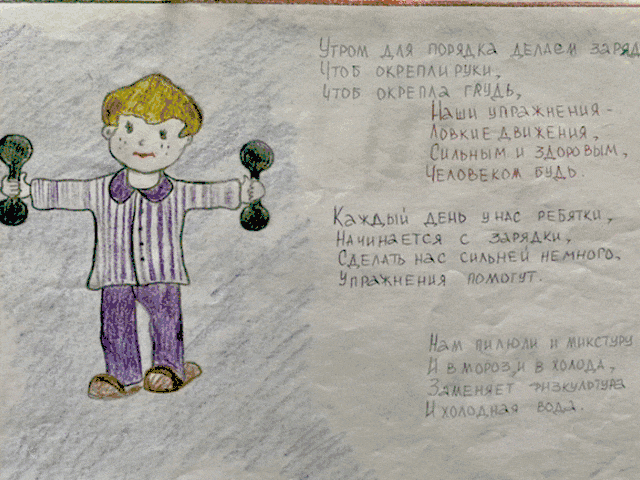 Утром для порядка делаем заряд
Чтоб окрепли руки,
Чтоб окрепла грудь,
Наши упражнения -
Ловкие движения,
Сильным и здоровым,
Человеком будь.
Каждый день у нас ребятки,
Начинается с зарядки,
Сделать нас сильней немного,
Упражнения помогут.
Нам пилюли и микстуру
И в мороз, и в холода,
Заменяет физкультура
И холодная вода.